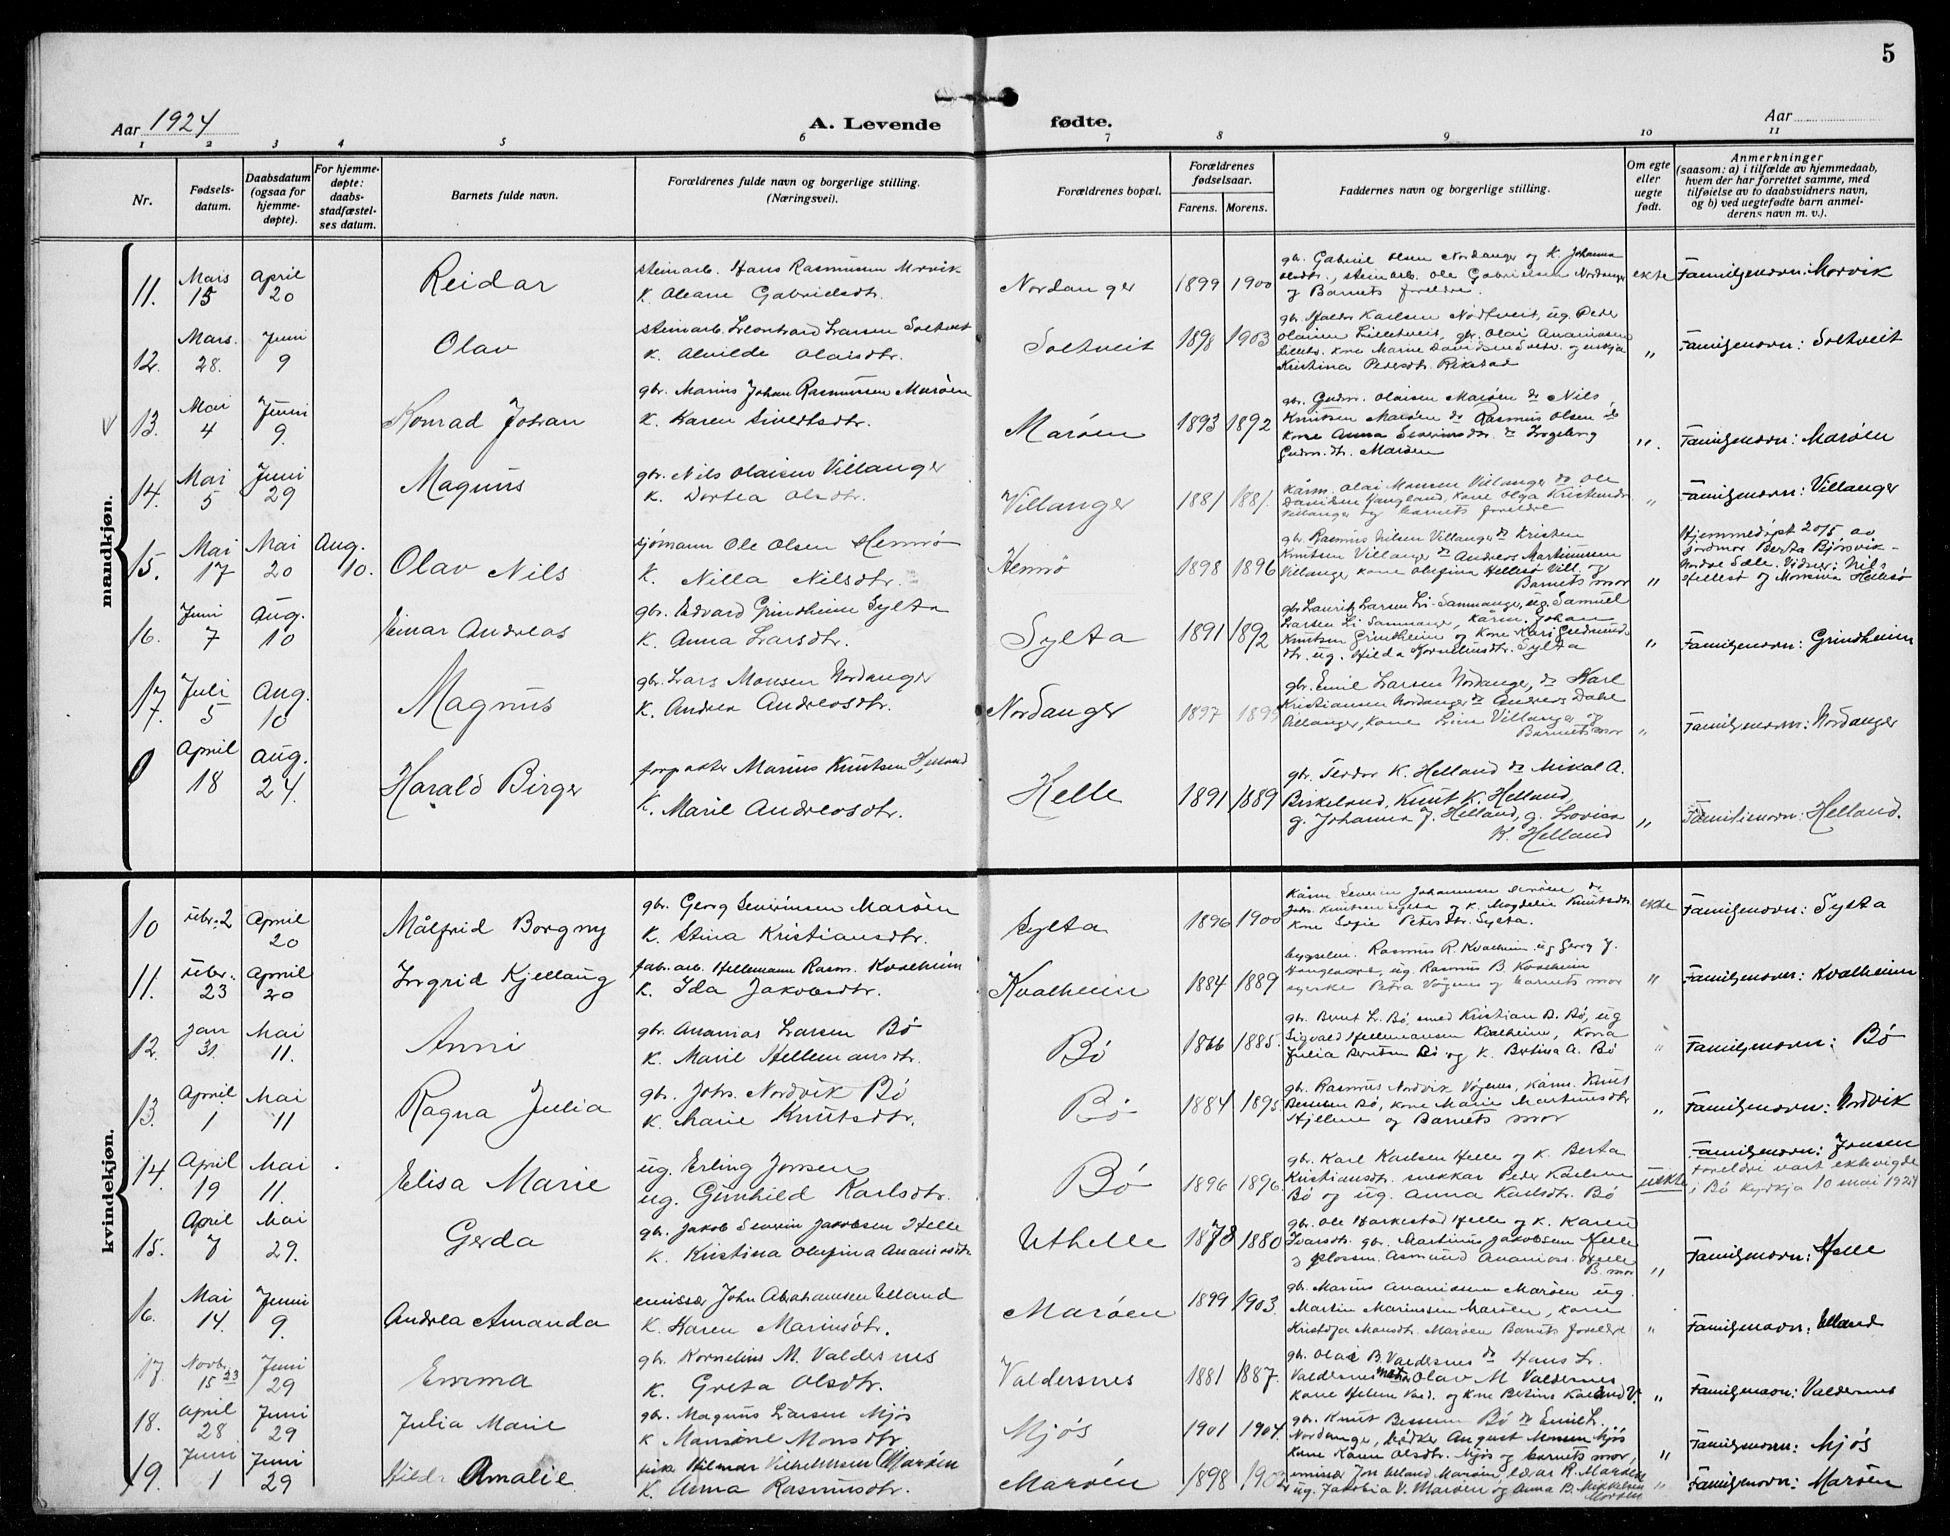 5
Aar 1924
A. Levende fødte.
Aar
1 2 3 4 5 6 7 8 9 10 11
Nr.
Fødsels-
datum.
Daabsdatum
(ogsaa for
hjemme-
døpte).
For hjemme-
døpte:
daabs-
stadfæstel-
ses datum.
Barnets fulde navn.
Forældrenes fulde navn og borgerlige stilling.
(Næringsvei).
Forældrenes bopæl.
Forældrenes
fødselsaar.
Farens. Morens.
Faddernes navn og borgerlige stilling.
Om egte
eller
uegte
født.
Anmerkninger
(saasom: a) i tilfælde av hjemmedaab,
hvem der har forrettet samme, med
tilføielse av to daabsvidners navn,
og b) ved uegtefødte barn anmel-
derens navn m. v.).
mandkjøn.
11. Mars 15 April 20 Reidar
steinarb. Hans Rasmussen Morvik
K. Oleane Gabrielsdtr.
Nordanger 1899 1900
gbr. Gabriel Olsen Nordanger og K. Johanna
Olsdtr., steinarb. Ole Gabrielsen Nordanger
og Barnets foreldre.
ekte Familjenavn: Morvik
12. Mars. 28. Juni 9 Olav
steinarb. Leonhard Larsen Soltveit
K. Alvilde Olaisdtr.
Soltveit 1898 1903
Kristina Pedersdtr. Rikstad
" Familjenavn: Soltveit
13. Mai 4 Juni 9. Konrad Johan
gbr. Marius Johan Rasmussen Marøen
K. Karen Sivertsdtr.
Marøen 1893 1892
gbr. Gudm. Olaisen Marøen ds Nils
Knutsen Marøen ds Rasmus Olsen ds
kone Anna Severinsdtr. ds Ingeborg
Gudm. dtr. Marøen
". Familjenavn: Marøen
14. Mai 5 Juni 29 Magnus
gbr. Nils Olaisen Villanger
K. Dortea Olsdtr.
Villanger 1881 1881.
Kårm. Olai Monsen Villanger ds Ole
Danielsen Haugland, kone Olga Kristensdr
Villanger og barnets foreldre
" Familjenavn: Villanger
15. Mai 17 Mai 20 Aug. 10. Olav Nils
sjømann Ole Olsen Hennø
K. Nilla Nilsdtr.
Hennø 1898 1896
gbr Rasmus Nilsen Villanger ds Kristen
Knutsen Villanger ds Andreas Martinussen
Villanger, kone Olufina Hellesø Vill. og
Barnets mor
" Hjemmedøpt 20/5 av
jordmor Berta Bjørsvik -
Nordre Sæle. Vidner: Nils
Hellesø og Monsina Hellesø
16. Juni 7 Aug. 10 Einar Andreas
gbr. Edvard Grindheim Sylta
K. Anna Larsdtr.
Sylta 1891 1892
gbr Lauritz Larsen Li - Sammanger, ug. Samuel
Larsen Li Sammanger, kårm. Johan
Knutsen Grindheim og Kone Kari Gudmunds
dtr. ug. Hilda Korneliusdtr. Sylta
" Familjenavn: Grindheim
17. Juli 5 Aug. 10 Magnus
gbr. Lars Monsen Nordanger
K. Andrea Andreasdtr.
Nordanger 1897
gbr. Emil Larsen Nordanger, ds Karl
Kristiansen Nordanger ds Andreas Dale
Villanger, kone Lina Villanger og
Barnets mor
" Familjenavn: Nordanger
April 18 Aug. 24. Harald Birger
forpakter Marius Knutsen Helland
K. Marie Andreasdtr.
Helle 1891 1889
gbr. Teodor K. Helland ds Mikal A.
Birkeland, Knut K. Helland,
g. Johanna J. Helland, g. Lovisa
K. Helland
" Familienavn: Helland.
kvindekjøn.
10 Febr. 2 April 20 Målfrid Borgny
gbr. Georg Severinsen Marøen
K. Stina Kristiansdtr.
Sylta 1896 1900
Joh. Knutsen Sylta og K. Magdela Knutsdtr
Kone Sofie Petersdtr. Sylta.
ekte Familjenavn: Sylta
11. Febr. 23 April 20 Ingrid Kjellaug
fabr. arb. Hellemann Rasm. Kvalheim
K. Ida Jakobsdtr.
Kvalheim 1884 1889
Rasmus R. Kvalheim ug Georg J.
ug. Rasmus B. Kvalheim
syerske Petra Vågenes og barnets mor
" Familjenavn: Kvalheim
12. Jan 31. Mai 11. Anni
gbr. Ananias Larsen Bø
K. Marie Hellemansdtr.
Bø 1866 1885.
gbr. Bernt L. Bø, smed Kristian B. Bø, ug
Sigvald Hellemansen Kvalheim, kona
Julia Berntsen Bø og K. Bertina A. Bø
" Familjenavn: Bø
13. April 1 Mai 11 Ragna Julia
gbr. Johs. Nordvik Bø
K. Marie Knutsdtr.
Bø 1884 1895
gbr. Rasmus Nordvik Vågenes, kårm. Knut
Bessesen Bø, kone Marie Martinusdtr
Hjelleve og Barnets mor
" Familjenavn: Nordvik
14. April 19 Mai 11. Elisa Marie
ug. Erling Jonsen
ug. Gunhild Karlsdtr.
Bø 1896 1896
gbr. Karl Karlsen Helle og K. Berta
Kristiansdtr. snekkar Peder Karlsen
Bø og ug. Anna Karlsdtr. Bø
uekte Familjenavn: Jonsen
Foreldri vart ektevigde
i Bø kyrkja 10 mai 1924
15. April 7 Mai 29. Gerda
gbr. Jakob Severin Jakobsen Helle
K. Kristina Olufina Ananiasdtr
Uthelle 1878 1880
gbr. Ole Harkestad Helle og K. Karen
Ivarsdtr. gbr. Martinus Jakobsen Helle
Asmund Ananias. Helle
B. mor
" Familjenavn: Helle
16. Mai 14. Juni 9. Andrea Amanda
emissær John Abrahamsen Elland
K. Karen Mariusdtr.
Marøen 1899 1903.
gbr. Marius Ananiassen Marøen ug.
Martin Mariussen Marøen, kone
Kristofa Monsdtr. Marøen Barnets foreldre
" Familjenavn: Elland
17. Novbr 15 23 Juni 29 Emma
gbr. Kornelius M. Valdersnes
K. Greta Olsdtr.
Valdersnes 1881 1887.
gbr. Olai B. Valdersnes ds Hans L.
Valdersnes Olav M Valdersnes
" Familjenavn: Valdersnes
18. April 28 Juni 29 Julia Marie
gbr. Magnus Larsen Mjøs
K Monsine Monsdtr
Mjøs 1901 1904.
gbr. Knut Bessesen Bø ds Emil L.
Nordanger, bødker August Monsen Mjøs
Kone Karen Olsdtr. Mjøs og barnets mor,
" Familjenavn: Mjøs
19. Juni 1 Juni 29 Amalie
Hilmar Vilhelmsen Marøen
K. Anna Rasmusdtr.
Marøen 1898 1902
emissær Jon Elland Marøen, lærar R. Marøen
ug. Jakobia V. Marøen og Anna B. Mikkelsen
Marøen
" Familjenavn: Marøen